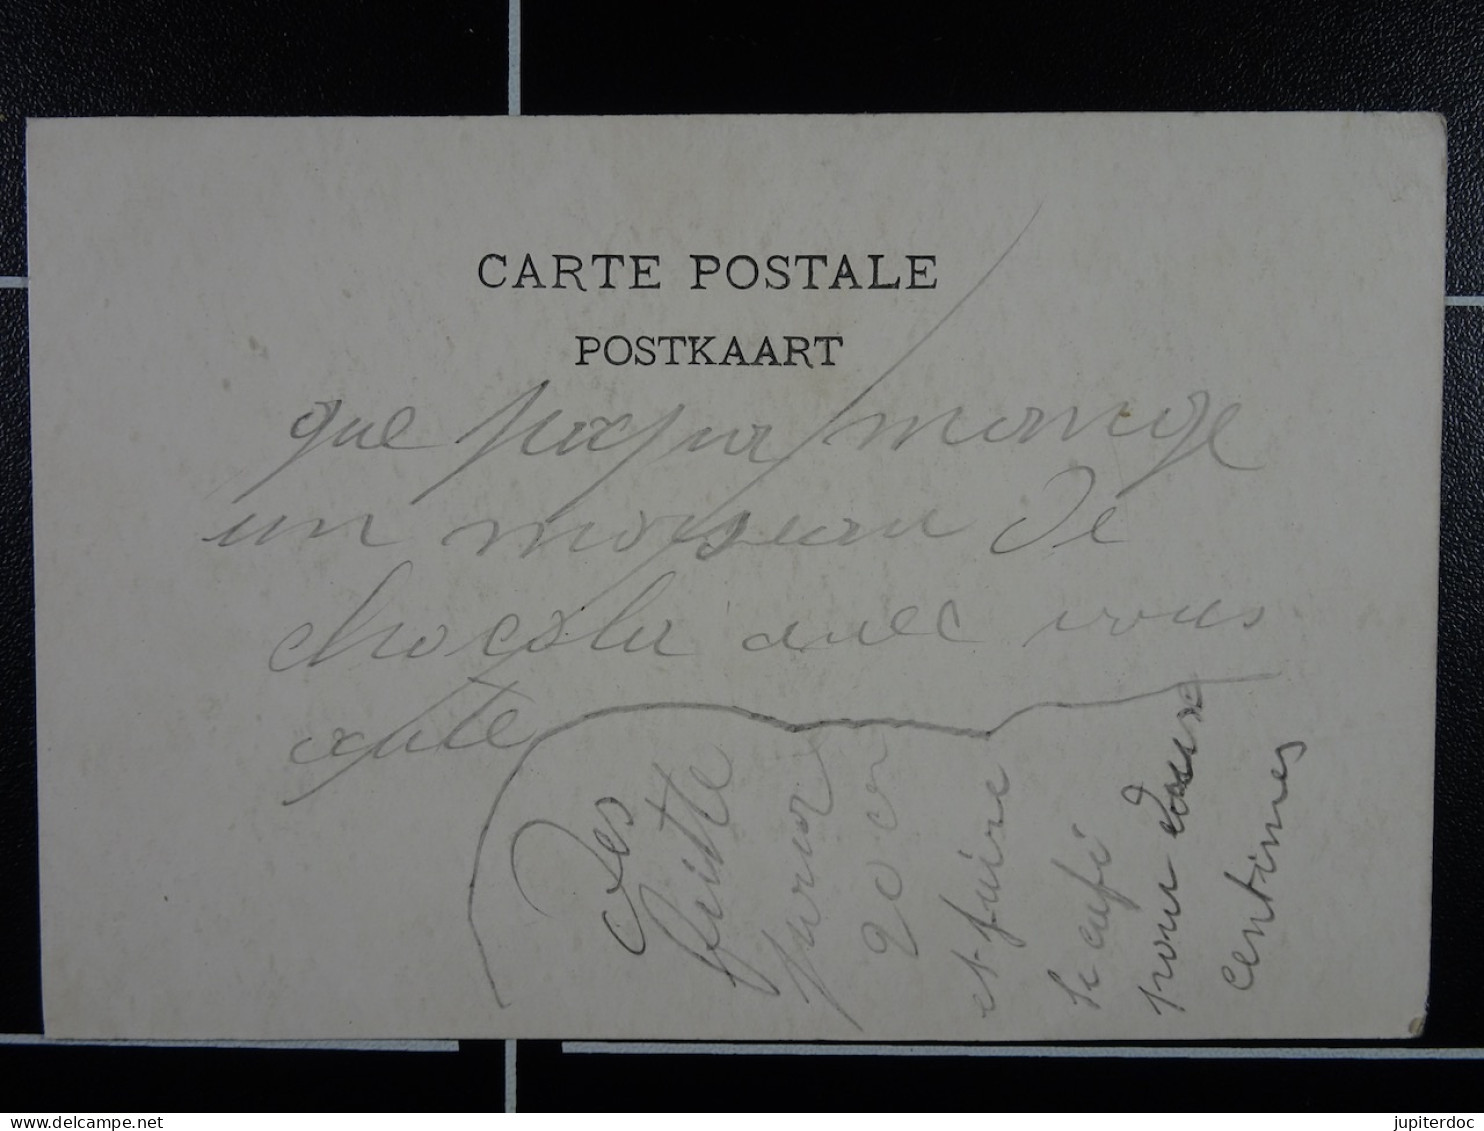 CARTE POSTALE
POSTKAART
que papa mange
un morseau de
chocola avec vous
aute
Des
fritte
pour
20 cn
et faire
le cafe
pour
centimes
delcampe.net
jupiterdoc